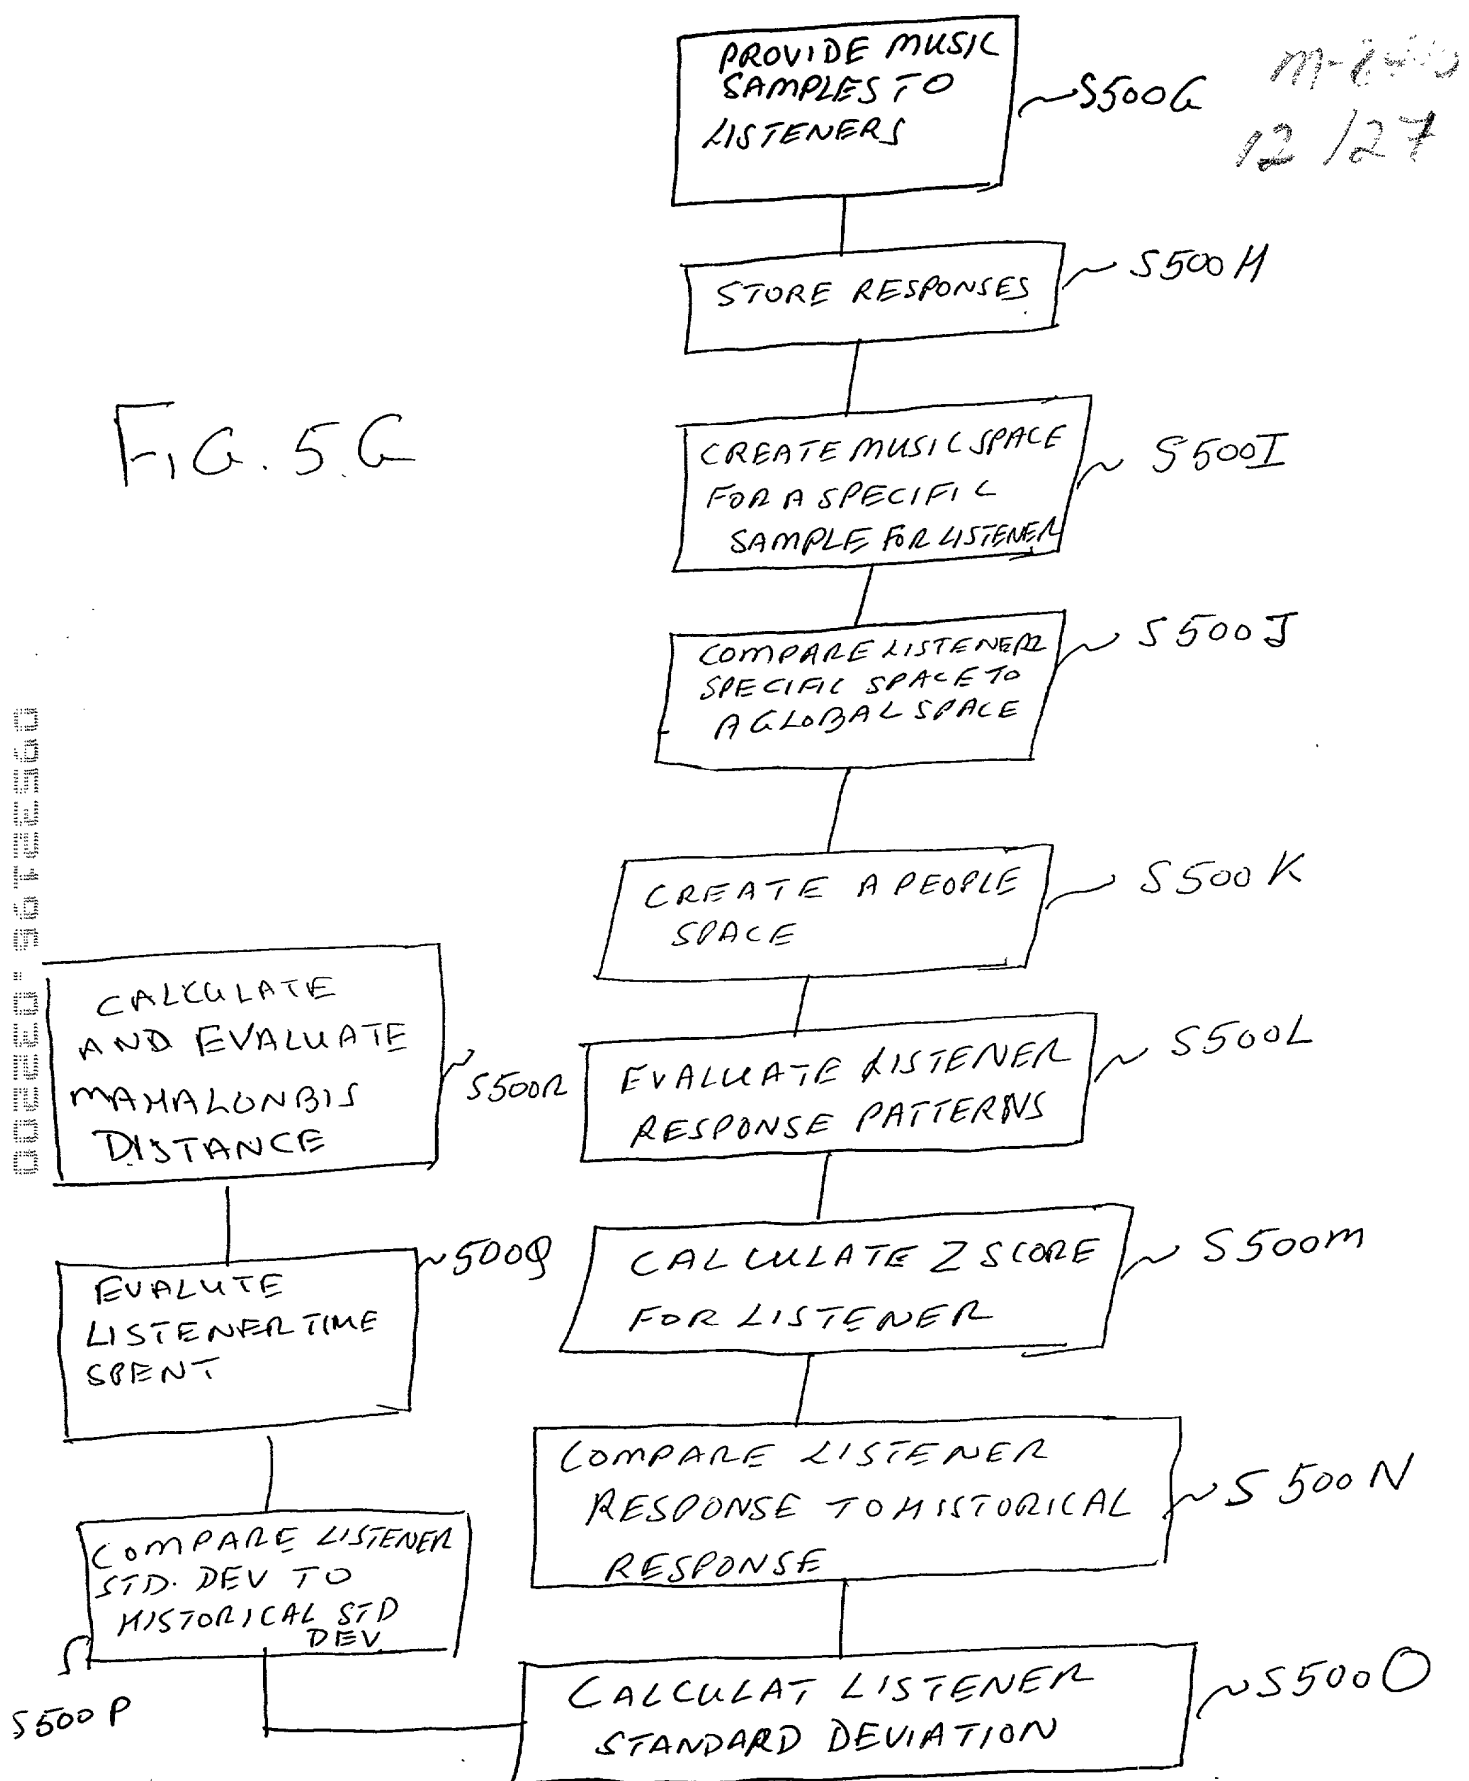 PROVIDE MUSIC
SAMPLES TO
LISTENERS
S500G
12/27
STORE RESPONSES
S500H
FIG. 5.G
CREATE MUSIC SPACE
FOR A SPECIFIC
SAMPLE FOR LISTENER
S500I
COMPARE LISTENER
SPECIFIC SPACE TO
A GLOBAL SPACE
S500J
CREATE A PEOPLE
SPACE
S500K
EVALUATE LISTENER
RESPONSE PATTERNS
S500L
CALCULATE Z SCORE
FOR LISTENER
S500M
COMPARE LISTENER
RESPONSE TO HISTORICAL
RESPONSE
S500N
CALCULAT LISTENER
STANDARD DEVIATION
S500O
COMPARE LISTENER
STD. DEV TO
HISTORICAL STD
DEV
S500P
EVALUTE
LISTENER TIME
SPENT
500Q
CALCULATE
AND EVALUATE
MAHALONBIS
DISTANCE
S500R
09532196.032200